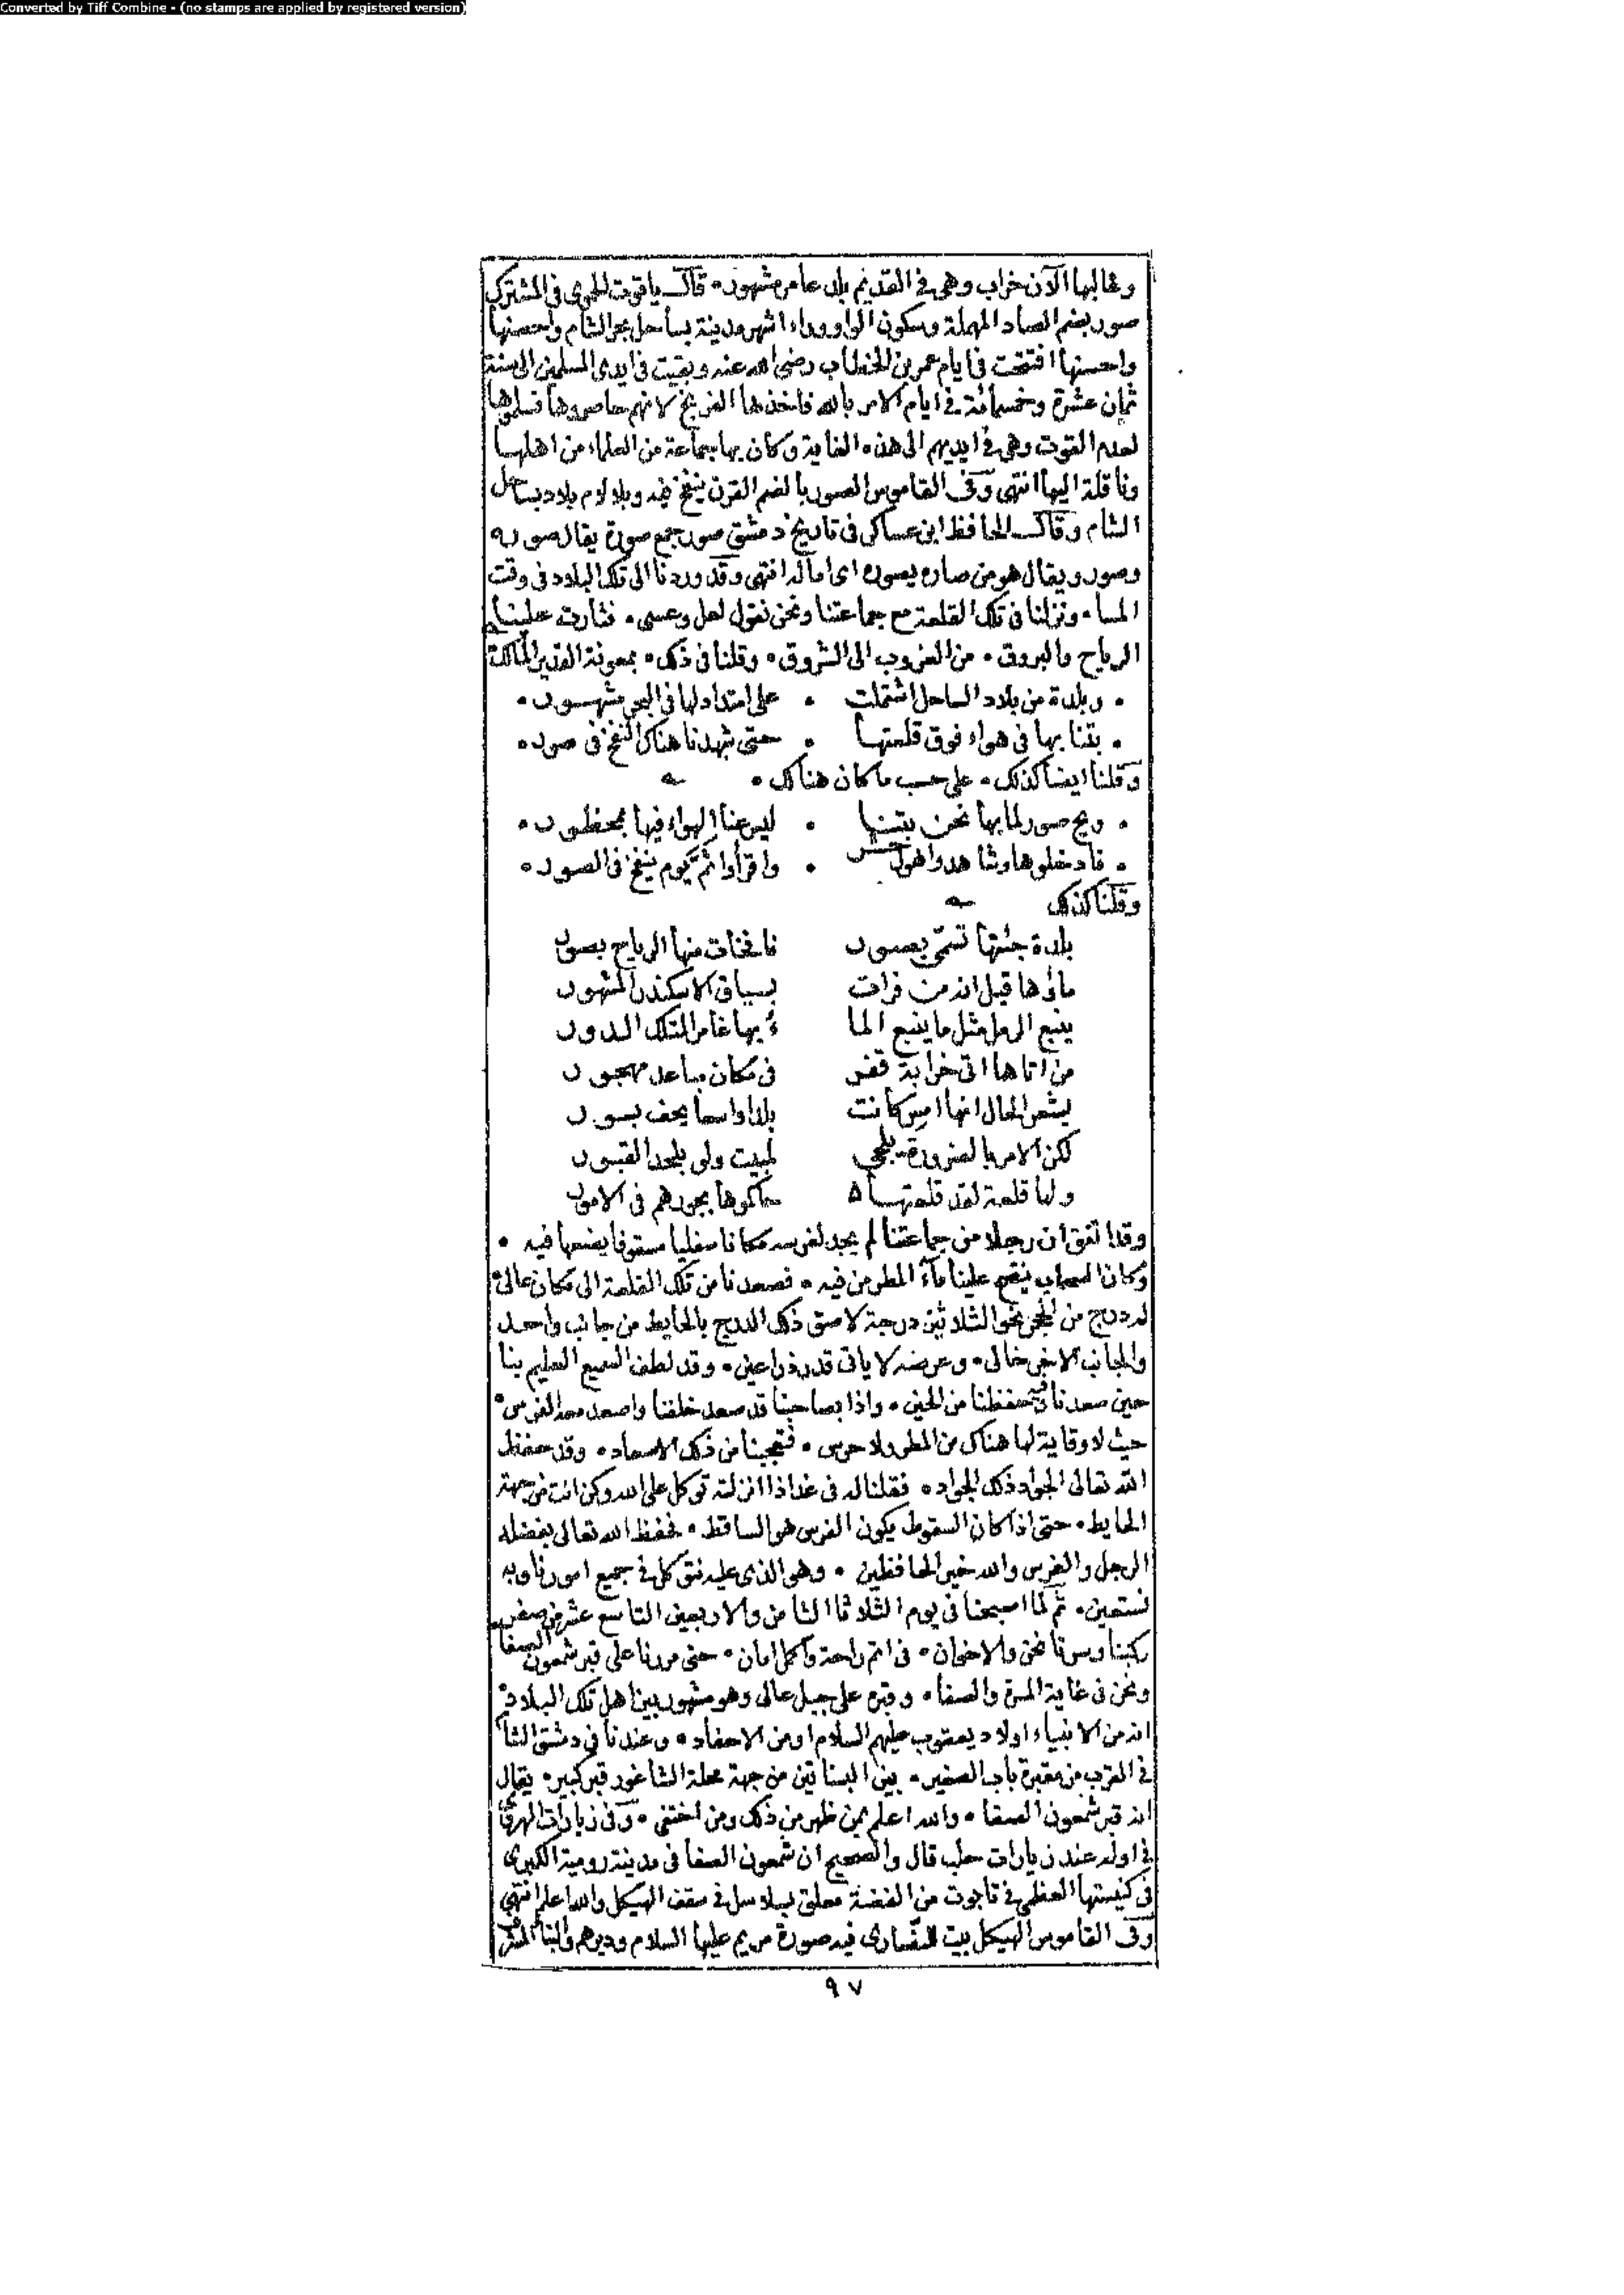 Converted by Tiff Combine - (no stamps are applied by registered version)
وغالبها الآن خراب وهي في القديم بلد عامر مشهور • قال ياقوت الحموي في المشترك
صور بضم الصاد المهملة وسكون الواو وراء اشهر مدينة بساحل بحر الشام واحصنها
واحسنها افتتحت في ايام عمر بن الخطاب رضي الله عنه وبقيت في ايدي المسلمين الى سنة
ثمان عشرة وخمسمائة في ايام الامر بالله فاخذها الفرنج لانهم حاصروها فسلموها
لعدم القوت وهي في ايديهم الى هذه الغاية وكان بها جماعة من العلماء من اهلها
وناقلة اليها انتهى وفي القاموس الصور بالضم القرن ينفخ فيه وبلا لام بلاد بساحل
الشام وقال الحافظ ابن عساكر في تاريخ دمشق صور جمع صورة يقال صوره
وصور ويقال هو من صاره يصوره اي اماله انتهى وقد وردنا الى تلك البلاد في وقت
المسا • ونزلنا في تلك القلعة مع جماعتنا ونحن نقول لعل وعسى • فثارت علينا
الرياح والبروق • من الغروب الى الشروق • وقلنا في ذلك • بمعونة القدير المالك
• وبلدة من بلاد الساحل اشتملت • على امتداد لها في البحر مشهور •
• بتنا بها في هواء فوق قلعتها • حتى شهدنا هناك النفخ في صور •
وقلنا ايضا كذلك • على حسب ما كان هنالك •
• ويح صور لما بها نحن بتنا • ليس عنا الهواء فيها بمحظور •
• فادخلوها وشاهدوا هول حشر • واقرأوا ثم يوم ينفخ في الصور •
وقلنا كذلك
بلدة جئتها تسمى بصور نافخات منها الرياح بصور
ماؤها قيل انه من فرات بسياق الاسكندر المشهور
ينبع الرمل مثل ما ينبع الما ء بها غامر لتلك الدور
من اتاها اتى خرابة قفر في مكان مباعد مهجور
يشعر الحال انها امس كانت بلدا واسعا يحف بسور
لكن الامر بالضرورة يلجي لمبيت ولو بلحد القبور
ولها قلعة لقد قلعتها ه حاكموها بجورهم في الامور
وقد اتفق ان رجلا من جماعتنا لم يجد لفرسه مكانا سفليا مسقوفا يضعها فيه •
وكان السحاب ينقع علينا ماء المطر من فيه • فصعدنا من تلك القلعة الى مكان عالي
له درج من الحجر نحو الثلاثين درجة لاصق ذلك الدرج بالحايط من جانب واحد
والجانب الاخر خالي • وعرضه لا ياتي قدر ذراعين • وقد لطف السميع العليم بنا
حين صعدنا فحفظنا من الحين • واذا بصاحبنا قد صعد خلفنا واصعد معه الفرس •
حيث لا وقاية لها هناك من المطر ولا حرس • فتعجبنا من ذلك الاسعاد • وقد حفظ
الله تعالى الجواد ذلك الجواد • فقلنا له في غد اذا انزلته توكل على الله وكن انت من جهة
الحايط • حتى اذا كان السقوط يكون الفرس هو الساقط • فحفظ الله تعالى بفضله
الرجل والفرس والله خير الحافظين • وهو الذي عليه نتوكل في جميع امورنا وبه
نستعين • ثم لما اصبحنا في يوم الثلاثا الثامن والاربعين التاسع عشر من صفر
ركبنا وسرنا نحن والاخوان • في اتم راحة واكمل امان • حتى مررنا على قبر شمعون الصفا
ونحن في غاية المسرة والصفا • وقبره على جبل عالى وهو مشهور بين اهل تلك البلاد •
انه من الانبياء اولاد يعقوب عليهم السلام او من الاحفاد • وعندنا في دمشق الشام
في القرب من مقبرة باب الصغير • بين البساتين من جهة محلة الشاغور قبر كبير • يقال
انه قبر شمعون الصفا • والله اعلم بمن ظهر من ذلك ومن اختفى • وفي زيارات الهروي
في اوله عند زيارات حلب قال والصحيح ان شمعون الصفا في مدينة رومية الكبرى
في كنيستها العظمى في تابوت من الفضة معلق بسلاسل في سقف الهيكل والله اعلم انتهى
وفي القاموس الهيكل بيت للنصارى فيه صورة مريم عليها السلام وديرهم والبنا المشرف
٩٧